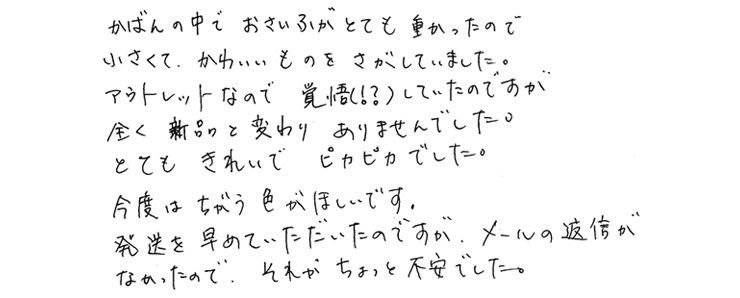 かばんの中で おさいふがとても 重かったので
小さくて、かわいい ものを さがしていました。
アウトレットなので 覚悟(!?)していたのですが
全く 新品と 変わり ありませんでした。
とても きれいで ピカピカでした。
今度は ちがう 色が ほしいです。
発送を 早めていただいたのですが、メールの 返信が
なかったので、それが ちょっと 不安でした。